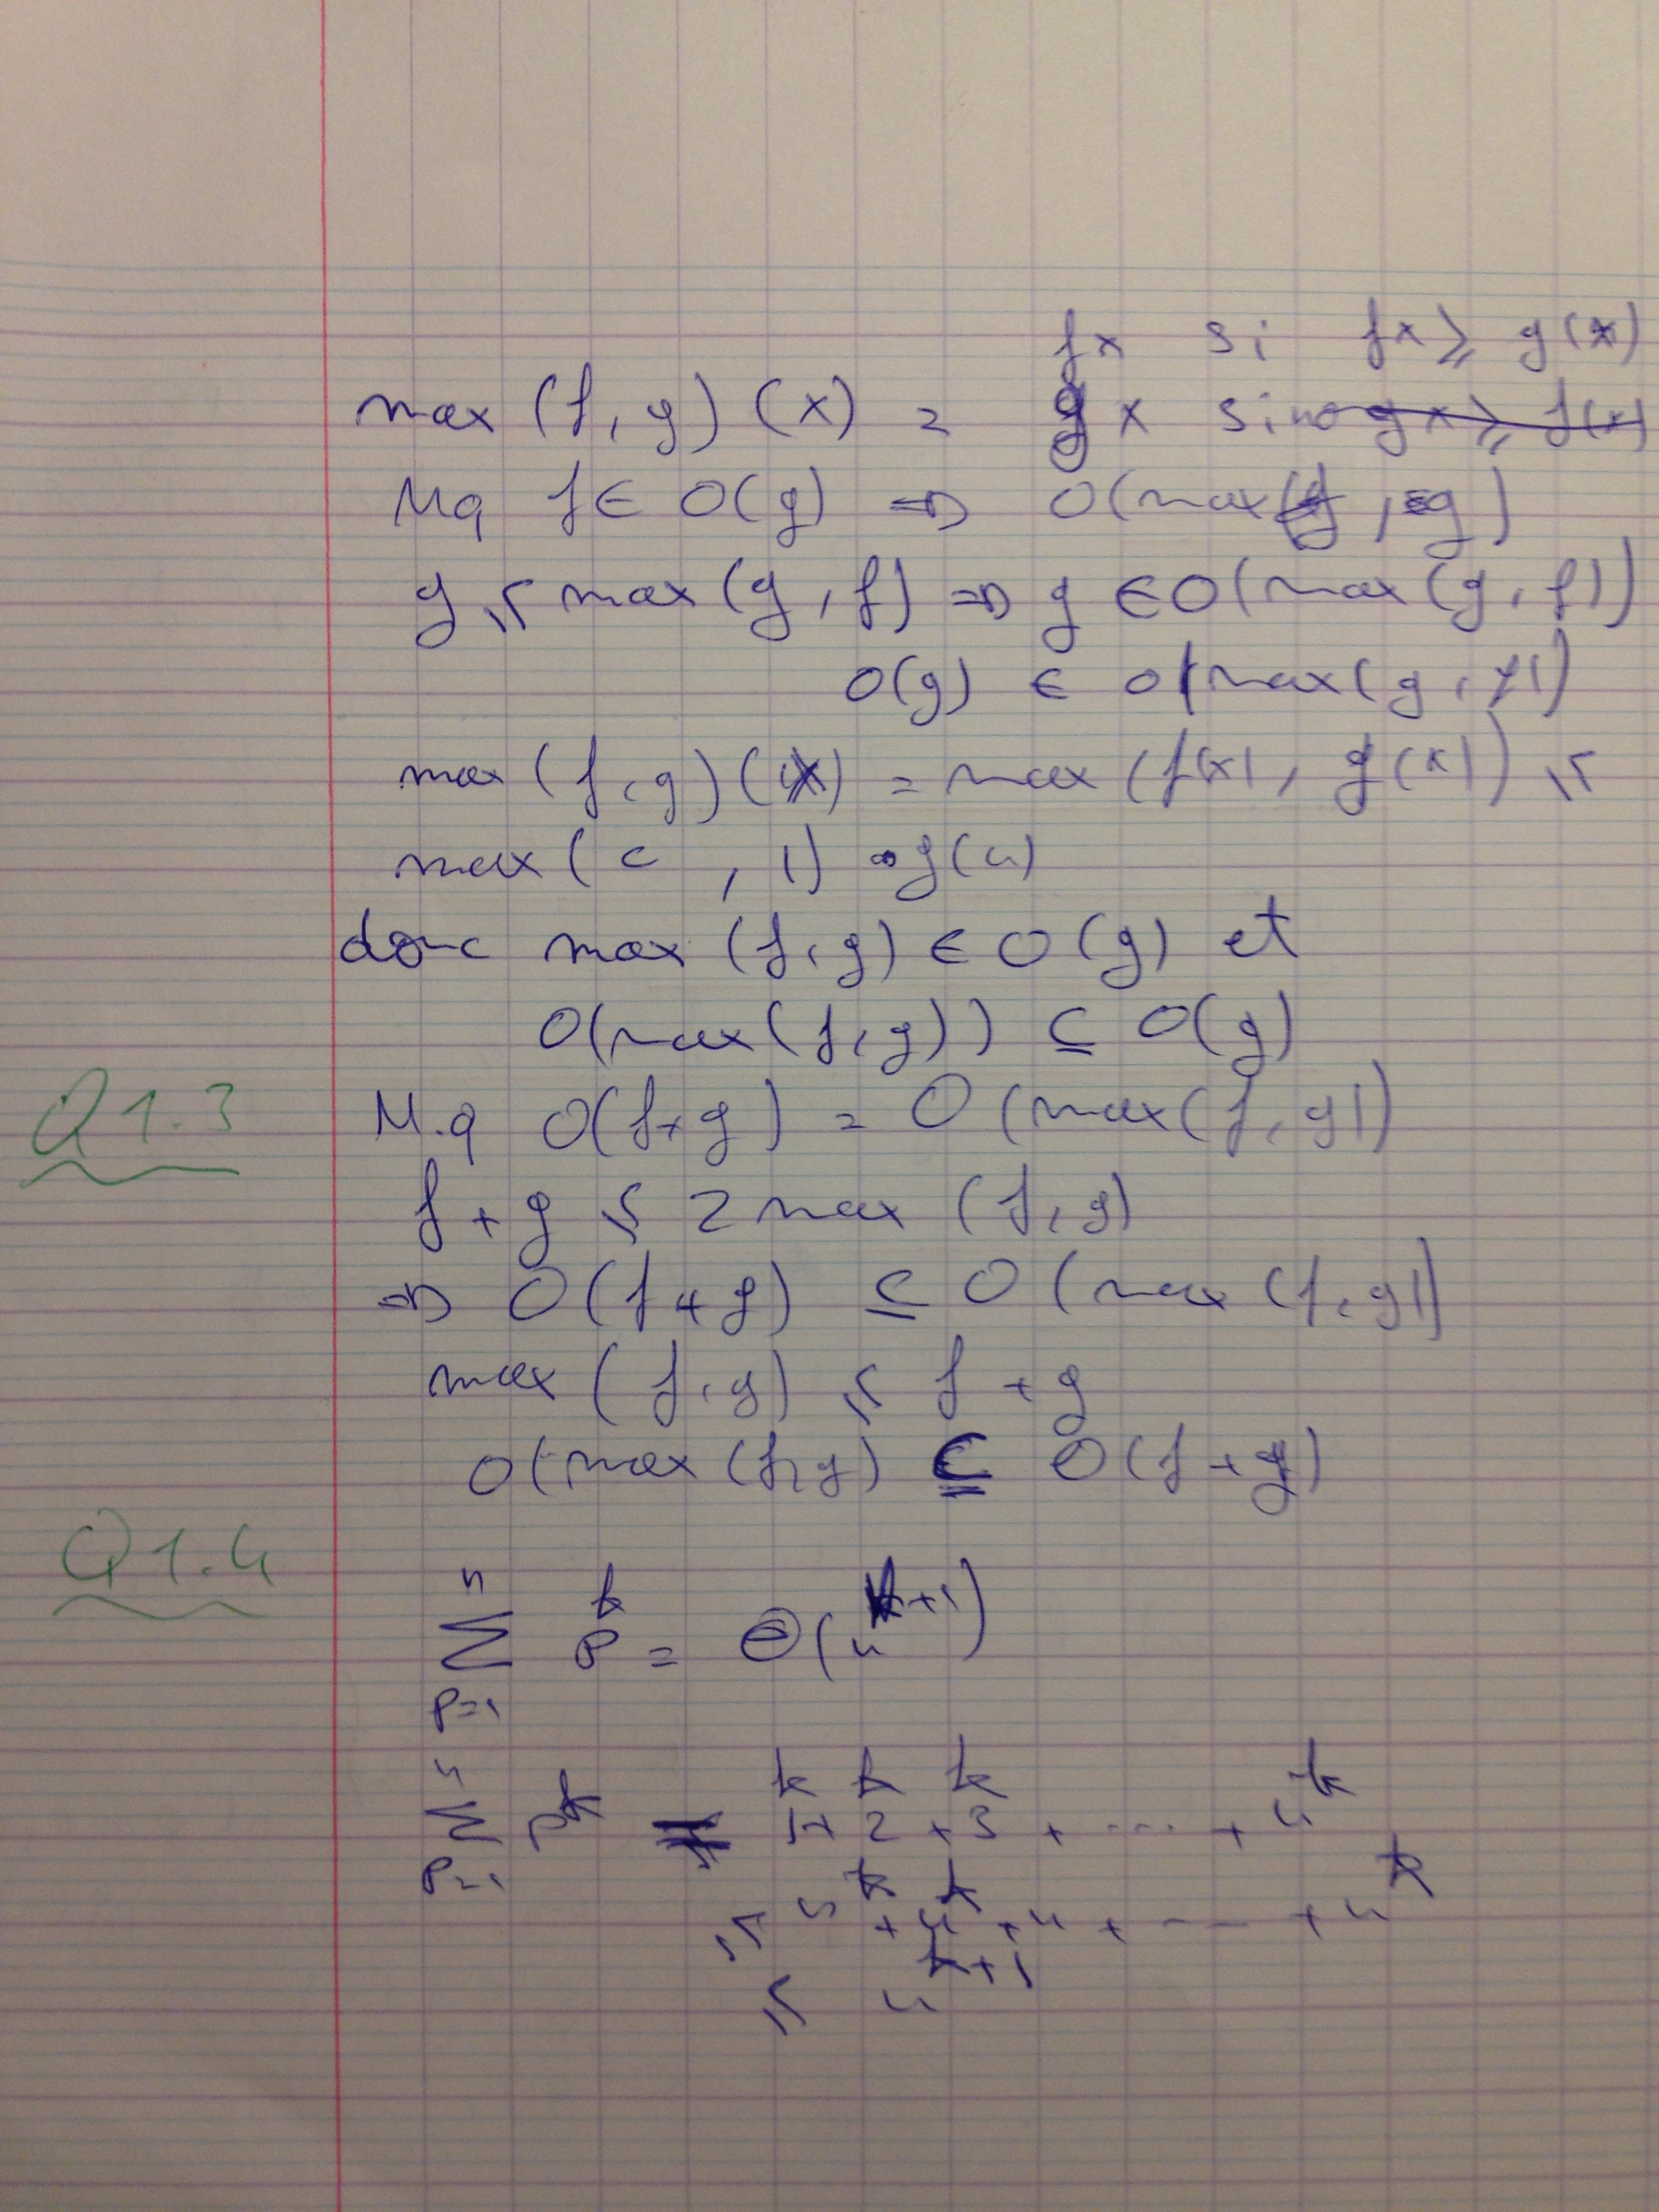 fx si fx ⩾ g(x)
max (f, g) (x) = gx sino gx ⩾ f(x)
Mq f ∈ O(g) ⇒ O(max(f, g)
g ⩽ max (g, f) ⇒ g ∈ O(max (g, f))
O(g) ∈ O(max(g, f))
max (f, g) (x) = max (f(x), g(x)) ⩽
max ( c , 1) g(n)
donc max (f, g) ∈ O(g) et
O(max (f, g)) ⊆ O(g)
Q1.3 M.q O(f+g) = O(max(f, g))
f + g ⩽ 2 max (f, g)
⇒ O(f+g) ⊆ O(max (f, g))
max (f, g) ⩽ f + g
O(max (f, g) ⊆ O(f+g)
Q1.4
n
∑ p^k = Θ(n^k+1)
p=1
n
∑ p^k = 1^k + 2^k + 3^k + ... + n^k
p=1
⩽ n^k + n^k + n + --- + n^k
⩽ n^k+1